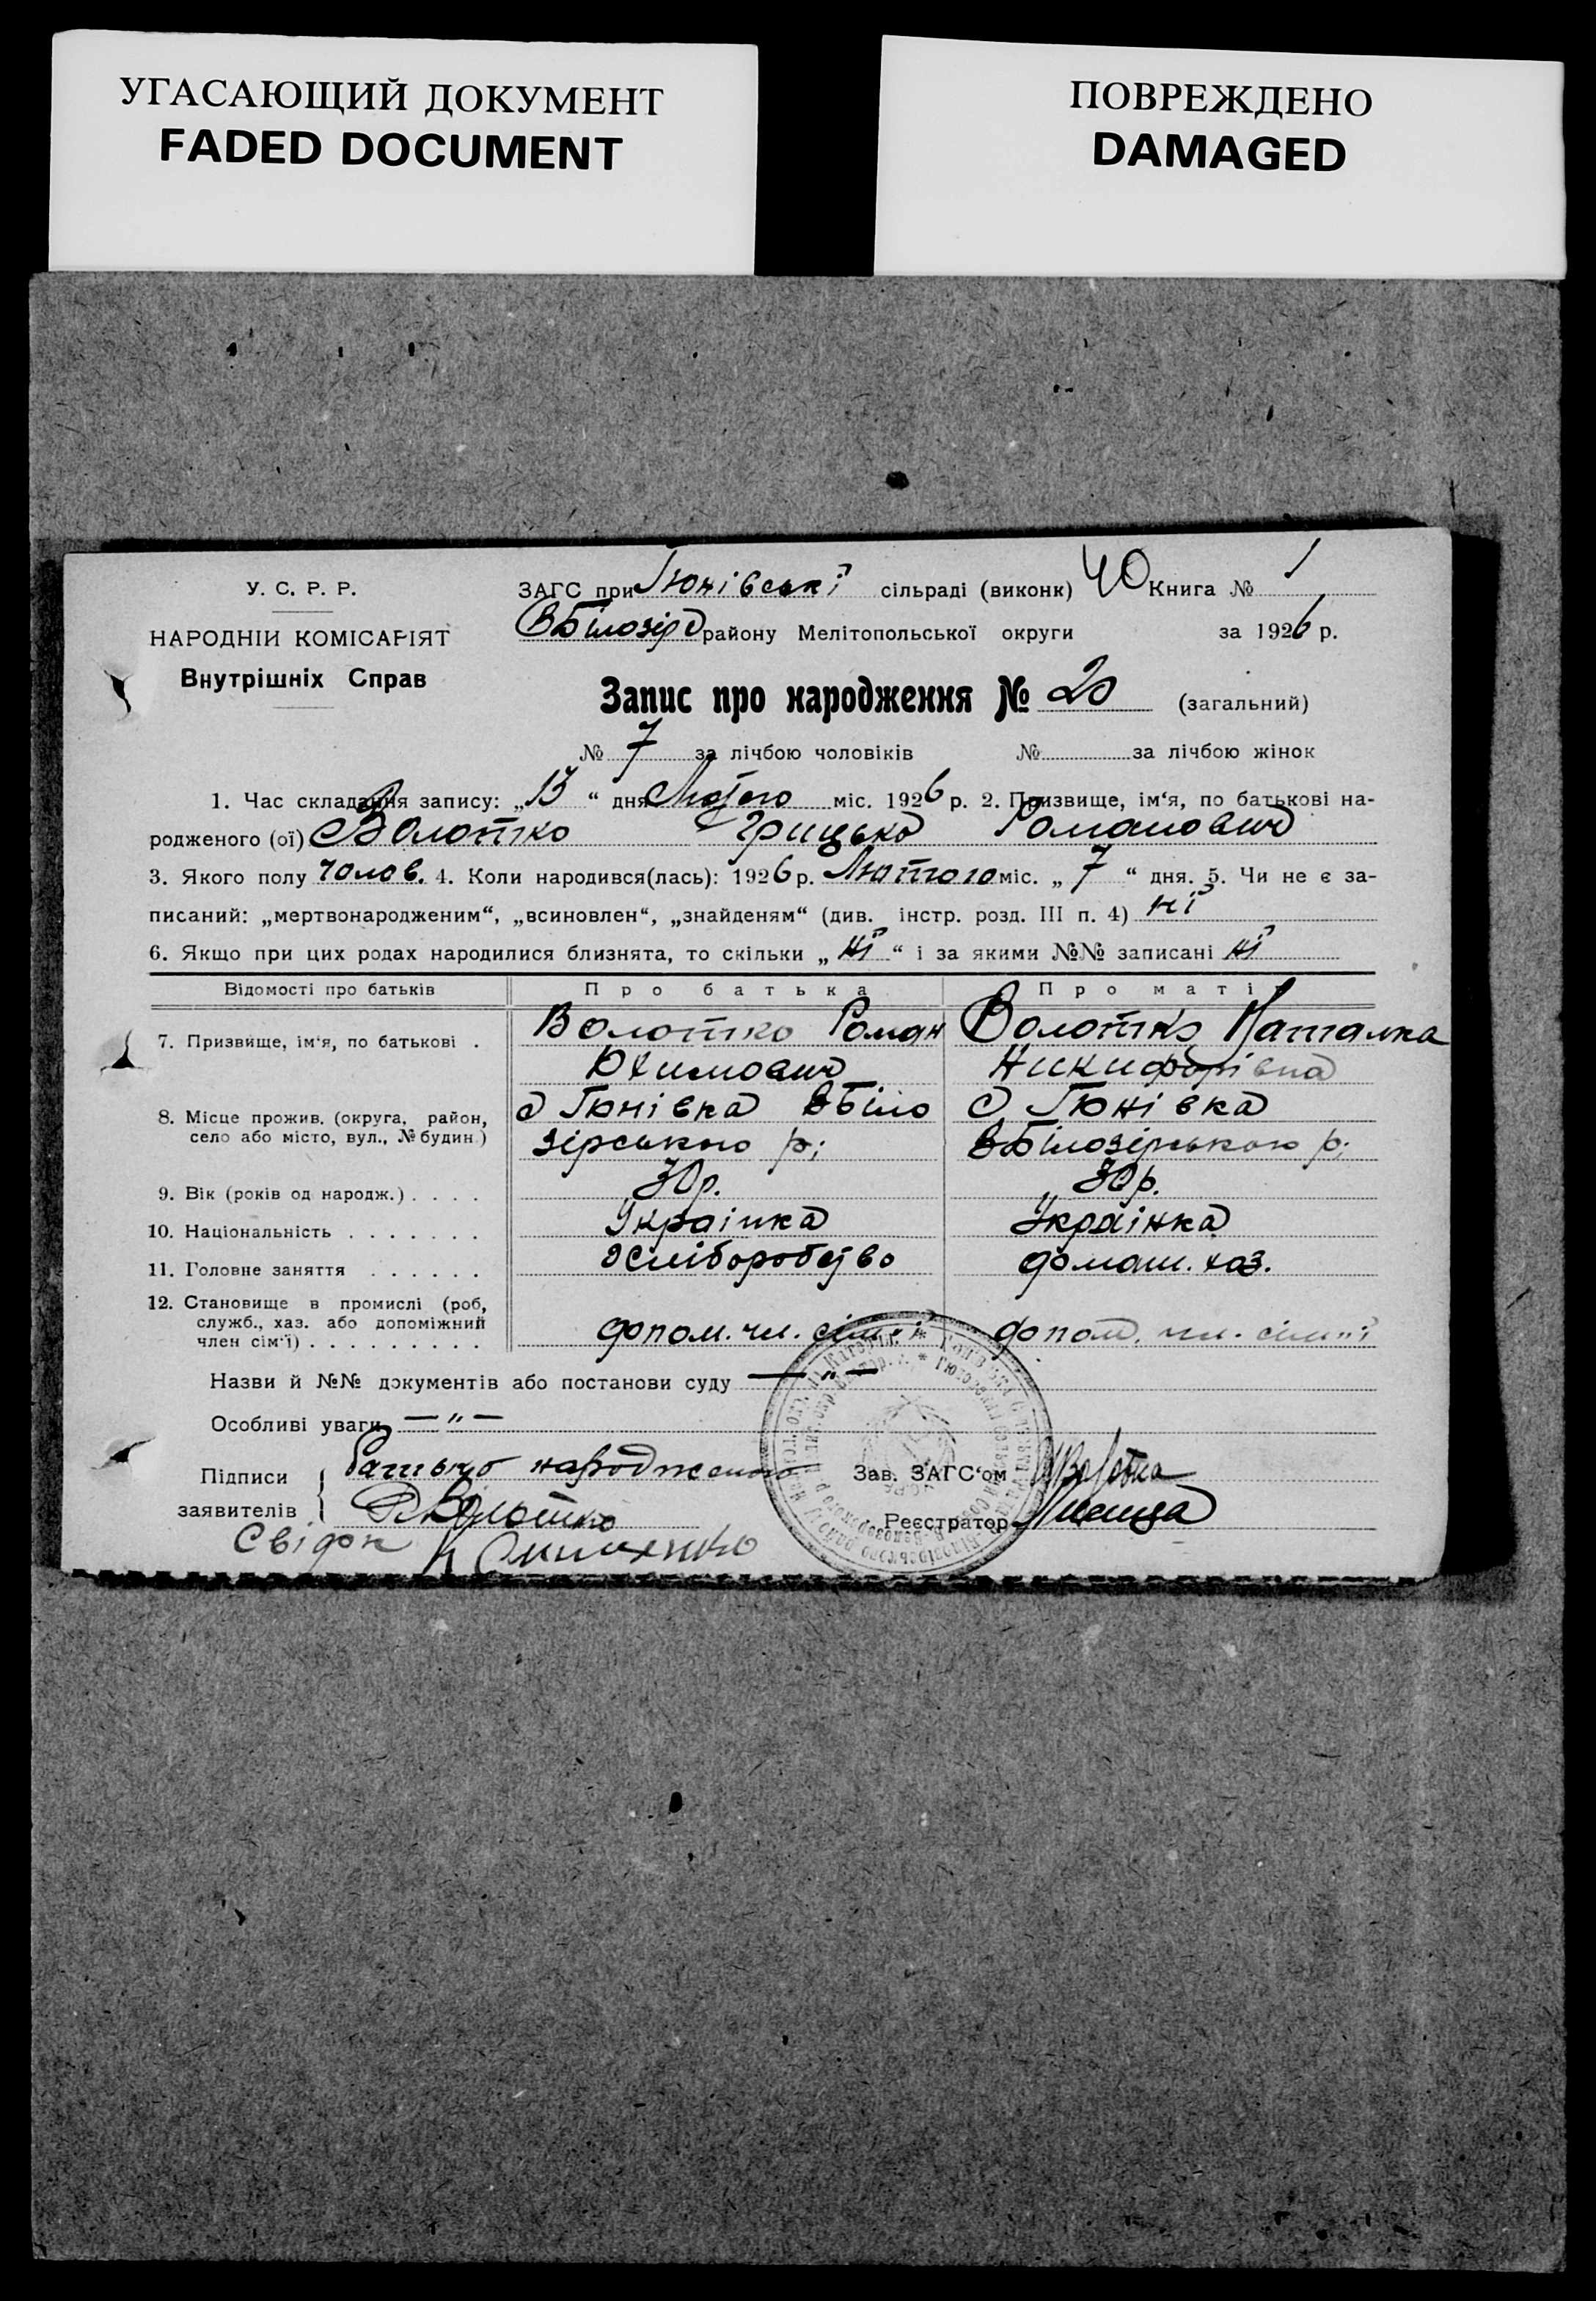 УГАСАЮЩИЙ ДОКУМЕНТ
FADED DOCUMENT
ПОВРЕЖДЕНО
DAMAGED
У. С. Р. Р.
НАРОДНІЙ КОМІСАРІЯТ
Внутрішніх Справ
ЗАГС при Гюнівські сільраді (виконк) 40 Книга № 1
ВБілозір району Мелітопольської округи за 1926 р.
Запис про народження № 20 (загальний)
№ 7 за лічбою чоловіків № за лічбою жінок
1. Час складання запису: „13“ дня Лютого міс. 1926 р. 2. Призвище, ім‘я, по батькові на-
родженого (ої) Волотко Грицько Романович
3. Якого полу чолов. 4. Коли народився(лась): 1926 р. Лютого міс. „7“ дня. 5. Чи не є за-
писаний: „мертвонародженим“, „всиновлен“, „знайденям“ (див. інстр. розд. III п. 4) ні
6. Якщо при цих родах народилися близнята, то скільки „ні“ і за якими №№ записані ні
Відомості про батьків Про батька Про матір
7. Призвище, ім‘я, по батькові . Волотко Роман Волотко Наталка
Юхимович Никифорівна
8. Місце прожив. (округа, район, с Гюнівка ВБіло с Гюнівка
село або місто, вул., № будин.) зірського р; ВБілозірського р;
9. Вік (років од народж.) . . . . 30р. 30р.
10. Національність . . . . . . . Українка Українка
11. Головне заняття . . . . . . хліборобство домаш. хаз.
12. Становище в промислі (роб,
служб., хаз. або допоміжний
член сім‘ї) . . . . . . . . . допом. чл. сім"ї допом. чл. сім"ї
Назви й №№ документів або постанови суду — " —
Особливі уваги — " —
Підписи заявителів Батько народженого
Р Волотко
Зав. ЗАГС‘ом
Реєстратор
Свідок